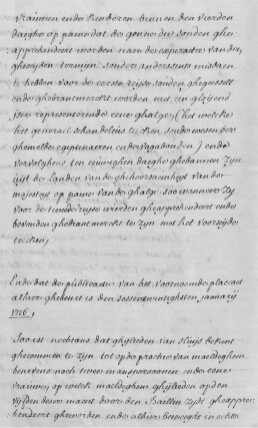 vrauwen ende kinderen binnen den vierden
daeghe op paene dat de gonne die souden ghe-
apprehendeert worden naer de expiratie van den
ghesyden termijn, sonder anderssints misdaen
te hebben voor de eerste reijse souden ghegeesselt
ende ghebrantmerckt worden met een gloijend
ijser representerende eene ghalge, (het welcke
het generael schandelijck teecken soude wesen der
ghemelde egyptenaeren ende vagabonden) ende
vervolghens ten eeuwighen daeghe ghebannen zijn
uijt de landen van de ghehoorsaemheijt van der
majesteijt op paene van de ghalge, soo wanneer zij
voor de tweede reijse worden gheapprehendeert ende
bevonden ghebrantmerckt te zijn met het voorseijde
teecken,
Ende dat de publicatie van het voornoemde placcaet
alhier ghebeurt is den sessentwintighsten januarij
1726,
Soo est nochtans dat ghijlieden van sluijs bekent
ghecommen te zijn tot op de prochie van maldeghem
benevens noch twee manspersoonen ende eene
vrauwe, op welck maldeghem ghijlieden op den
vijfden deser maent door den Bailliu zijt gheappre-
hendeert gheworden ende alhier bevrocht in echte